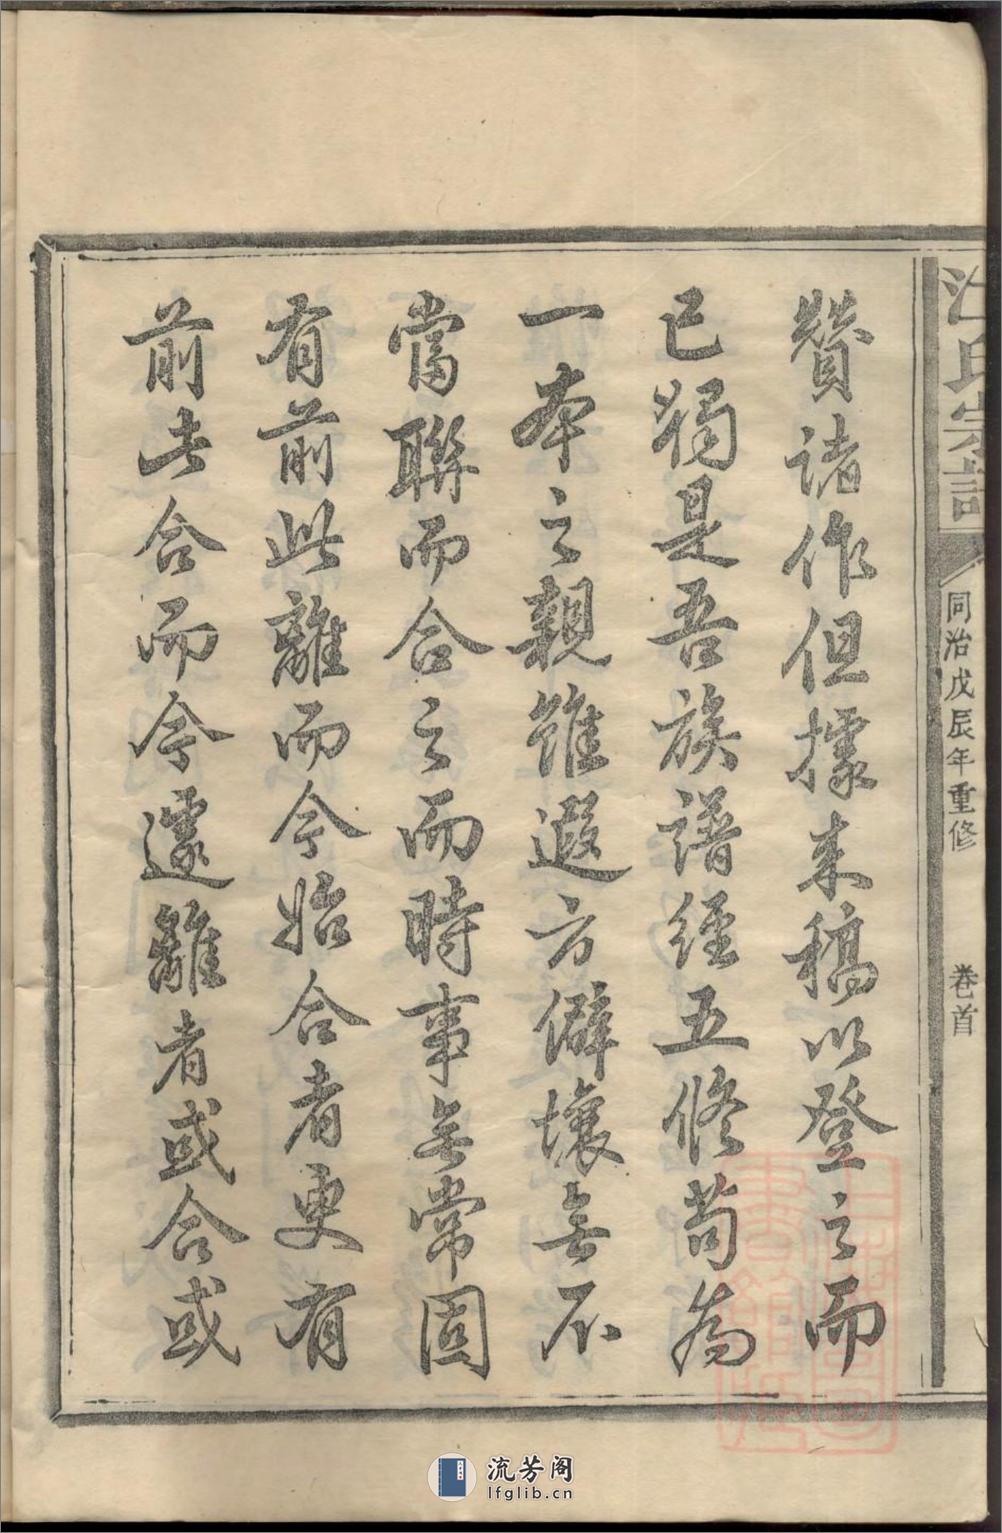 氏宗譜
同治戊辰年重修
卷首
贊諸作但據来稿以登之而
已獨是吾族譜經五修苟為
一本之親雖遐方僻壤無不
當聯而合之而時事無常固
有前此離而今始合者更有
前此合而今遽離者或合或
流芳阁
lfglib.cn